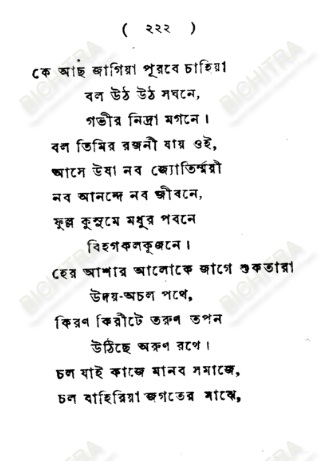 ( ২২২ )
কে আছ জাগিয়া পূরবে চাহিয়া
বল উঠ উঠ সঘনে,
গভীর নিদ্রা মগনে।
বল তিমির রজনী যায় ওই,
আসে উষা নব জ্যোতির্ম্ময়ী
নব আনন্দে নব জীবনে,
ফুল্ল কুসুমে মধুর পবনে
বিহগকলকূজনে।
হের আশার আলোকে জাগে শুকতারা
উদয়-অচল পথে,
কিরণ কিরীটে তরুণ তপন
উঠিছে অরুণ রথে।
চল যাই কাজে মানব সমাজে,
চল বাহিরিয়া জগতের মাঝে,
BICHITRA
BICHITRA
BICHITRA
BICHITRA
BICHITRA
BICHITRA